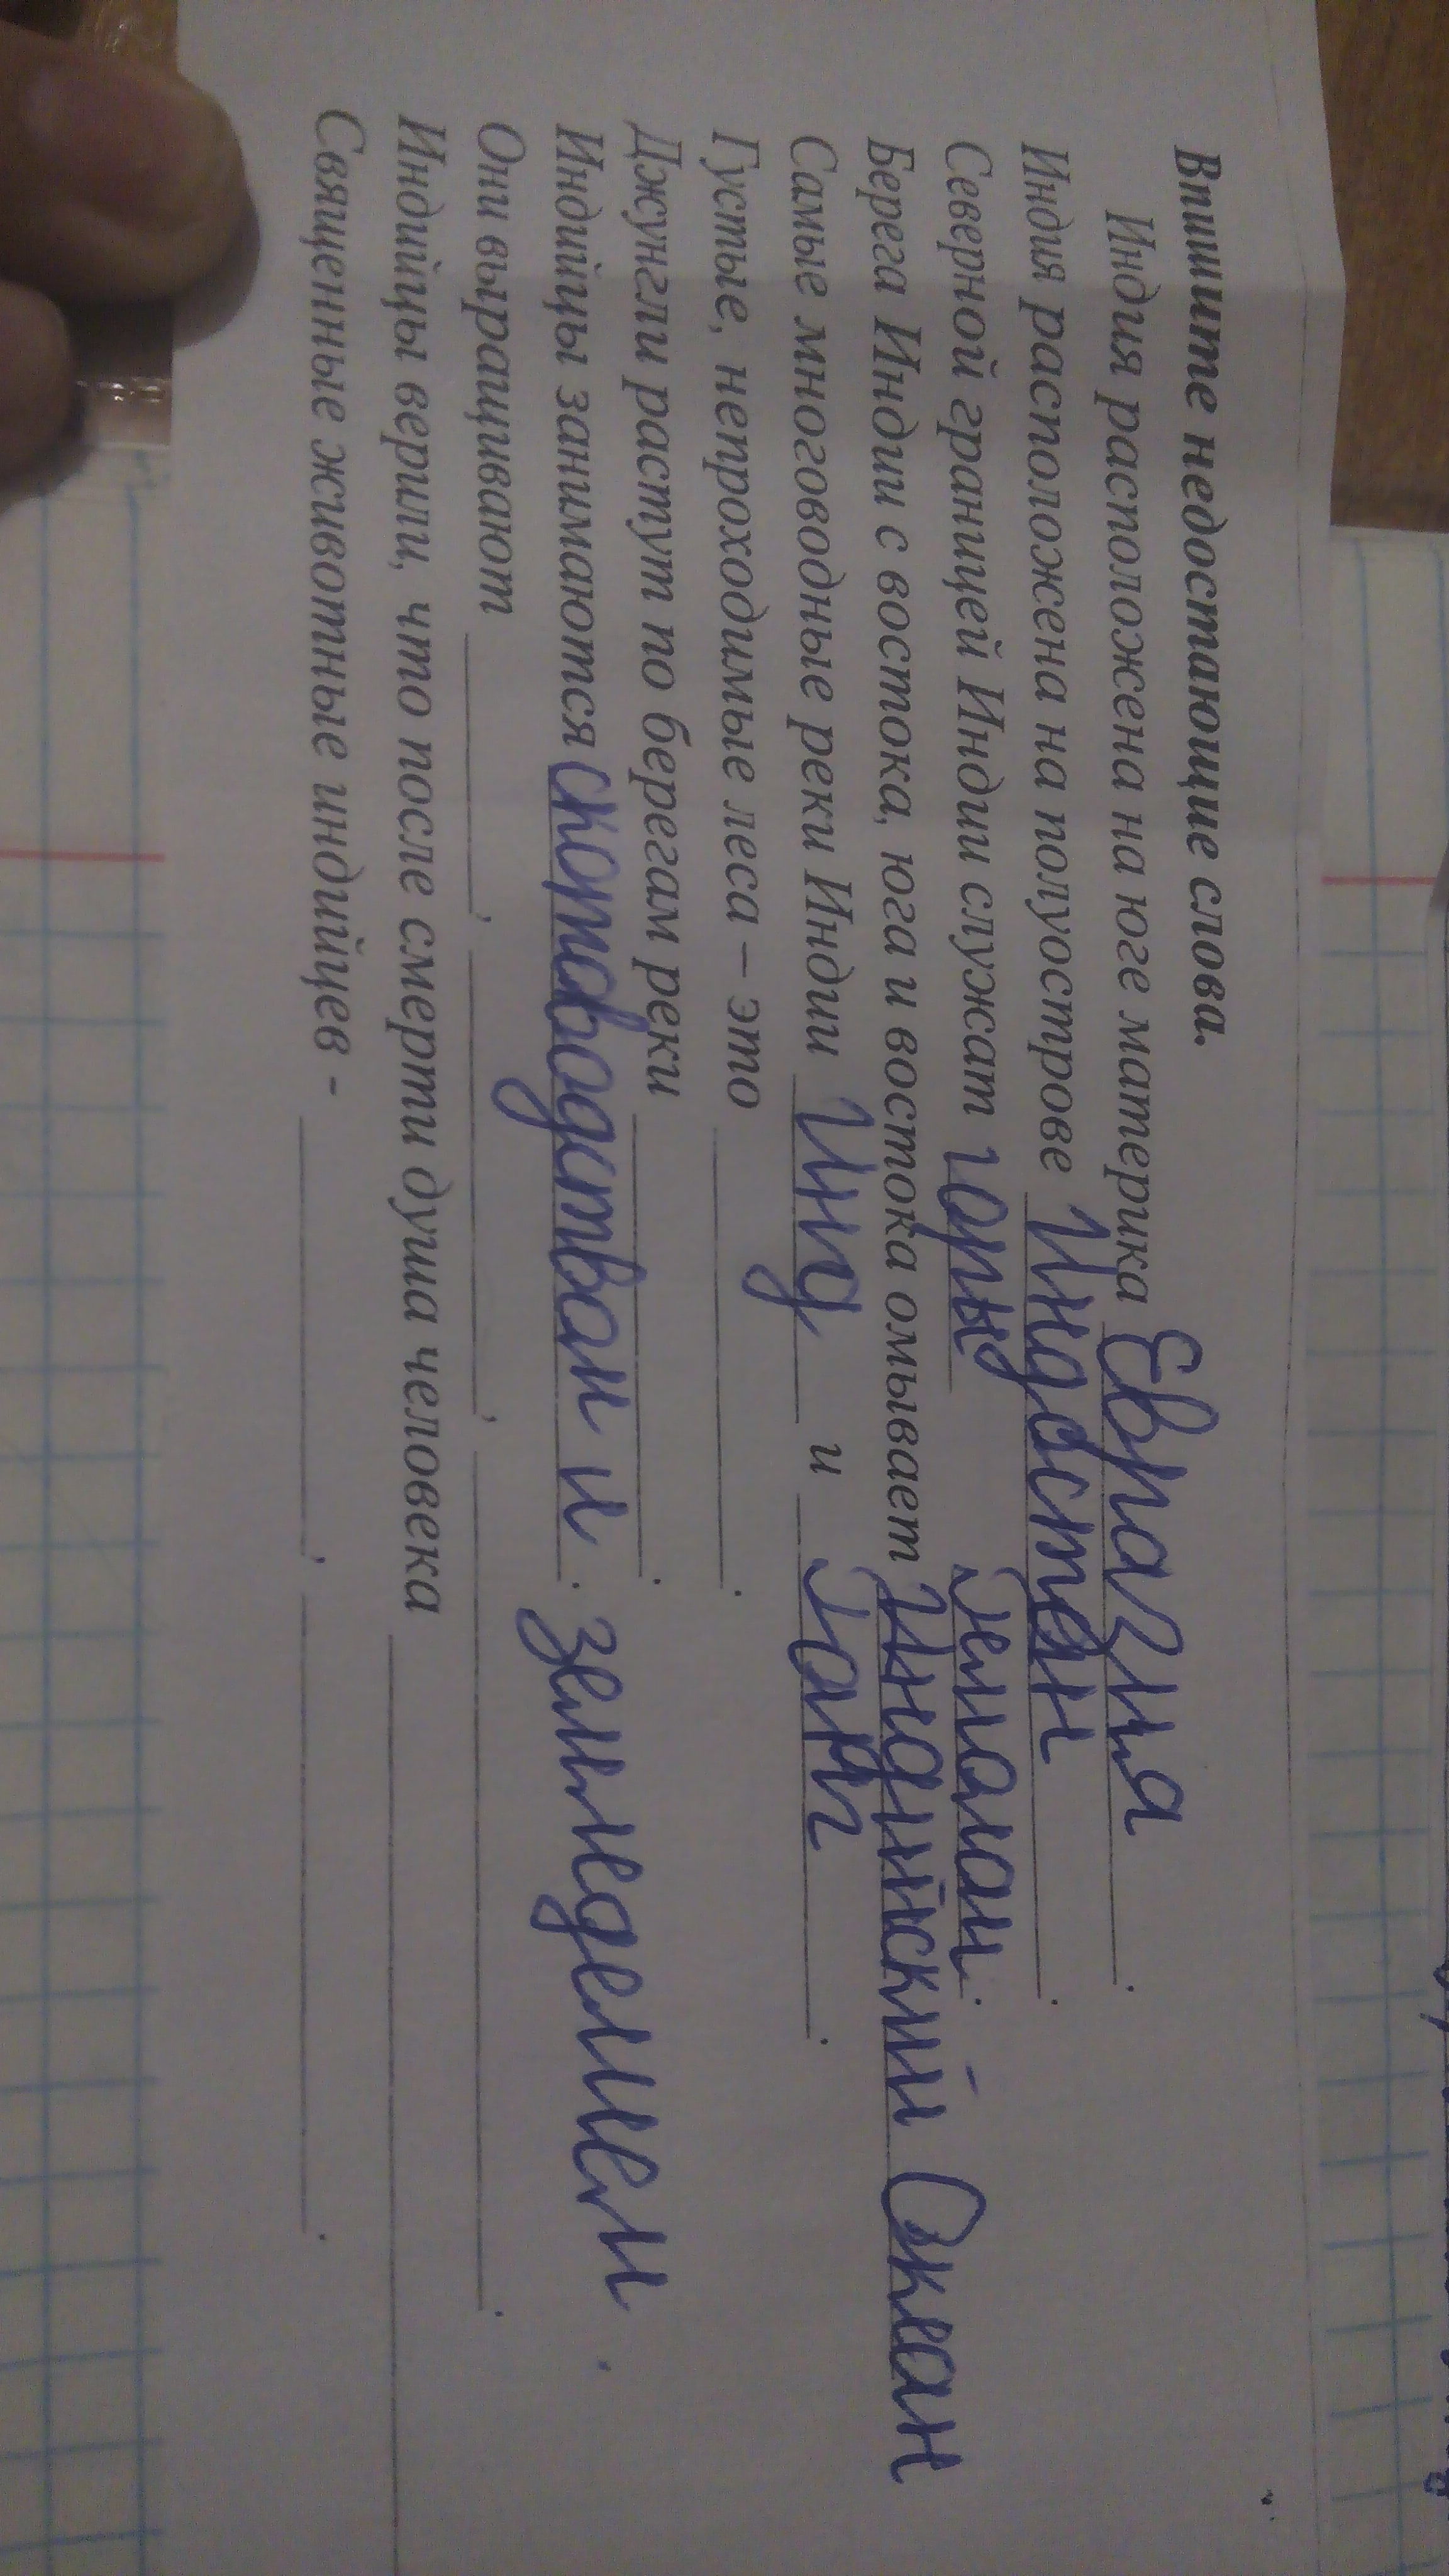 Впишите недостающие слова.
Индия расположена на юге материка Евразия.
Индия расположена на полуострове Индостан.
Северной границей Индии служат горы Гималаи.
Берега Индии с востока, юга и востока омывает Индийский Океан
Самые многоводные реки Индии Инд и Ганг.
Густые, непроходимые леса – это .
Джунгли растут по берегам реки .
Индийцы занимаются скотоводством и . земледелием.
Они выращивают , , .
Индийцы верили, что после смерти душа человека
Священные животные индийцев - , .